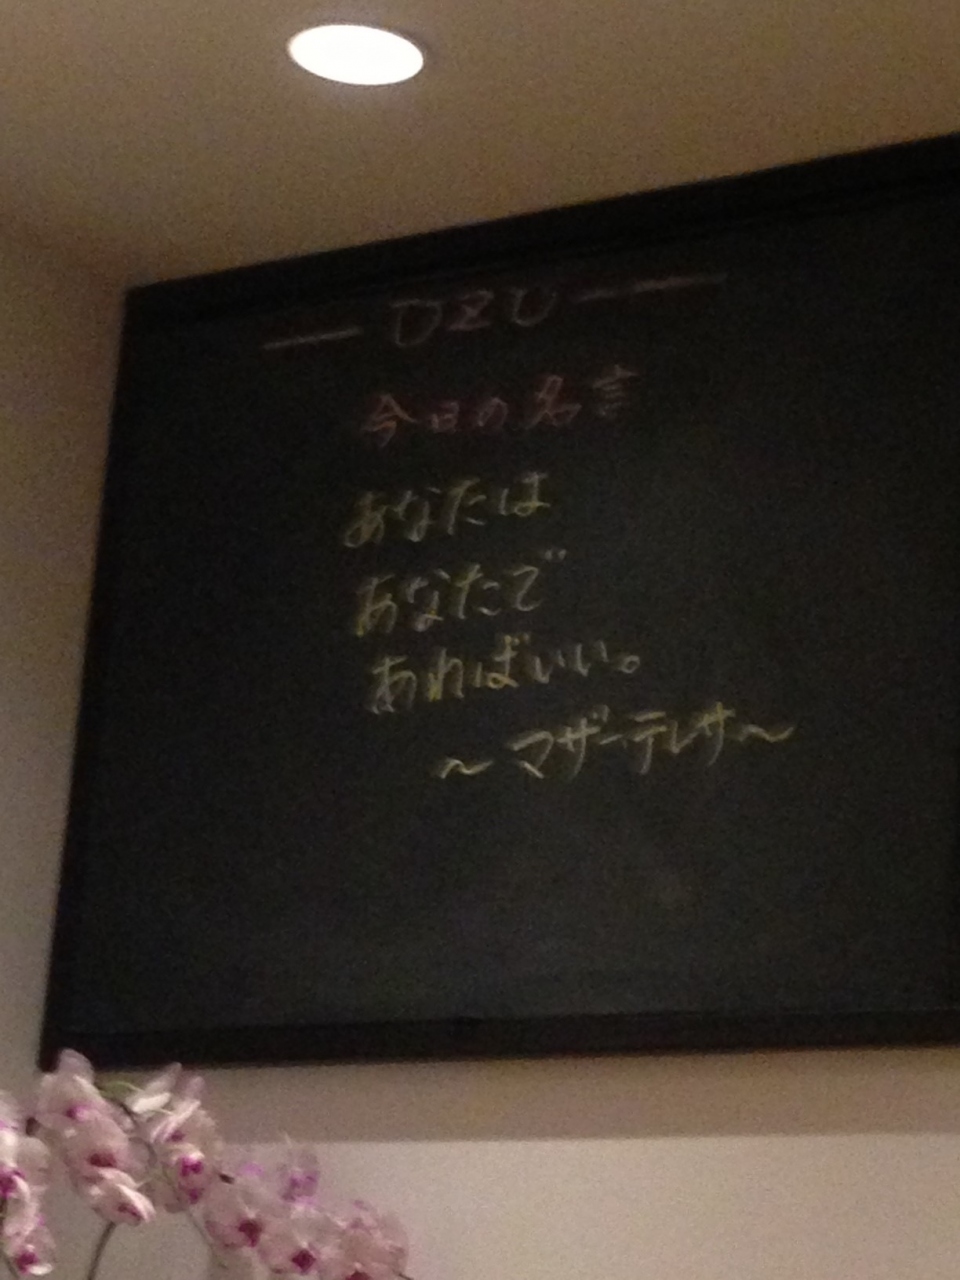 — UZU —
今日の名言
あなたは
あなたで
あればいい。
～マザーテレサ～